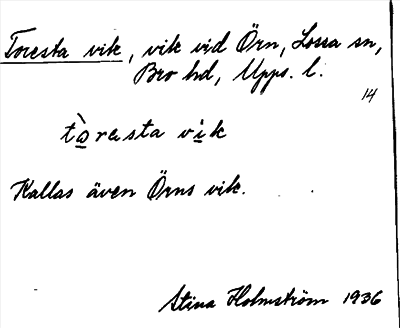 Toresta vik, vik vid Örn, Lossa sn,
Bro hd, Upps. l.
14
tòresta vik
Kallas även Örns vik.
Stina Holmström 1936